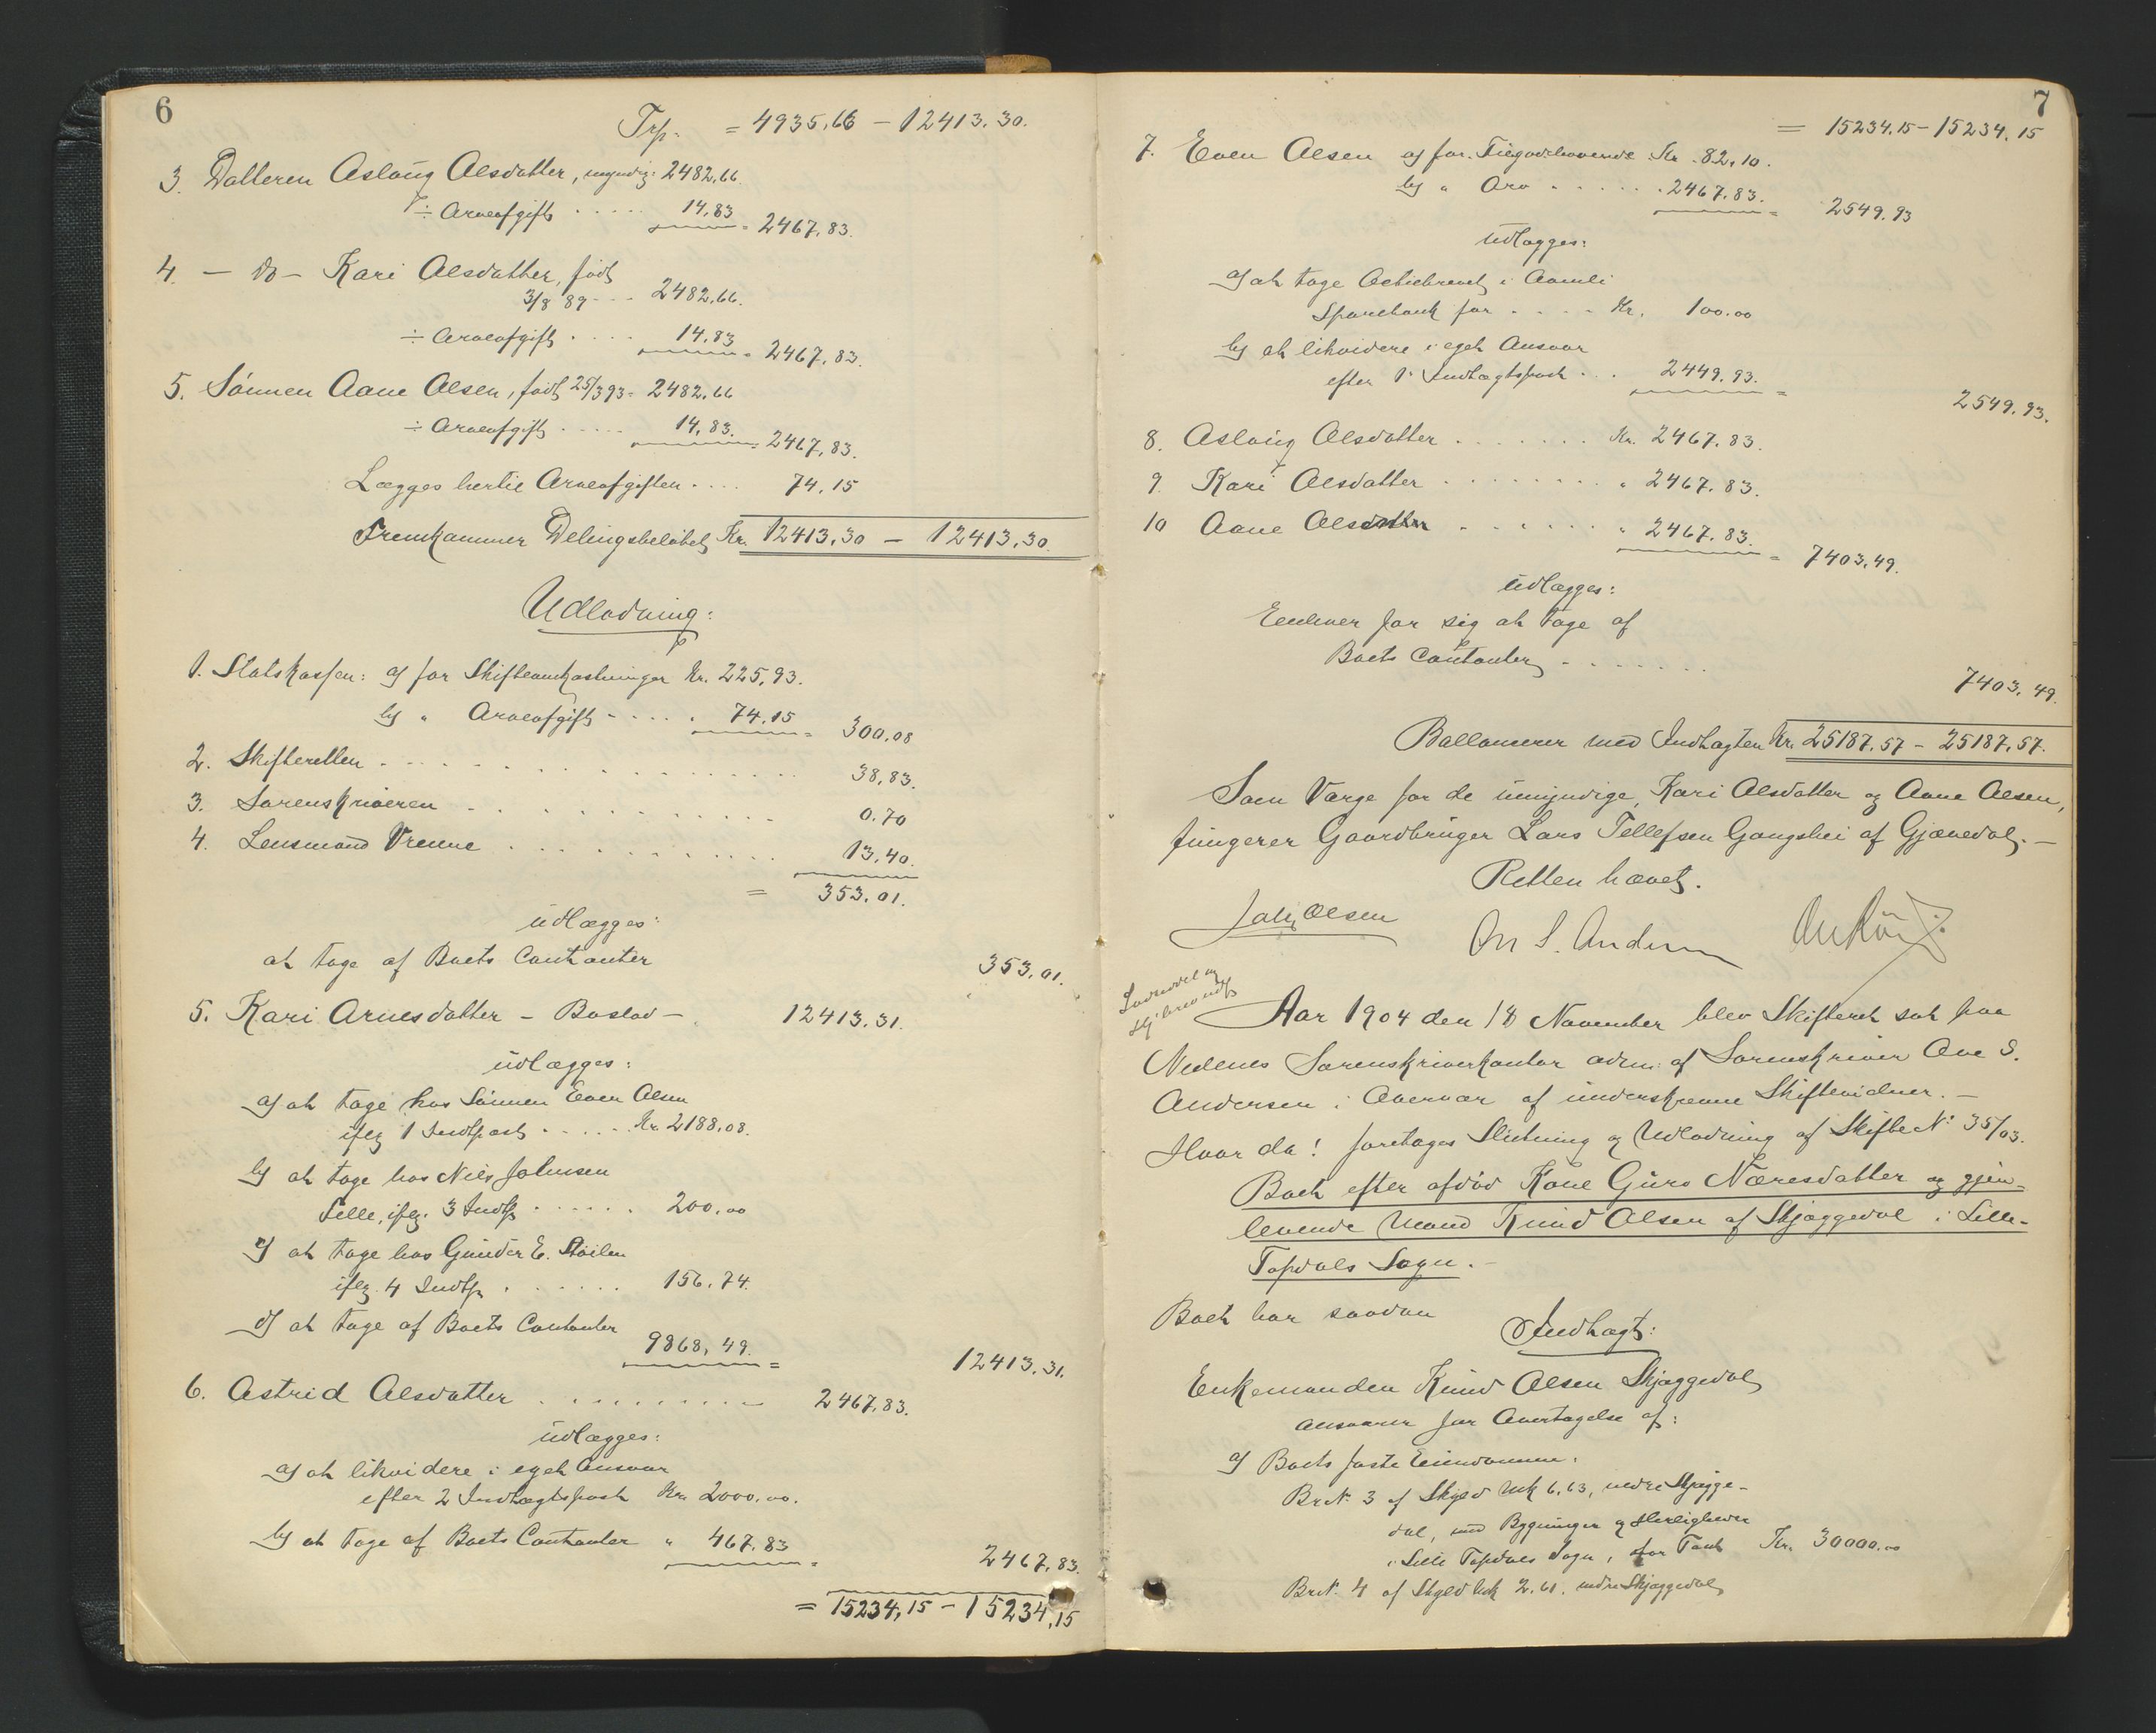 6
Trp. = 4935,66 – 12413,30.
3. Datteren Aslaug Olsdatter, myndig: 2482,66
÷ Arveafgift . . . . . 14,83 = 2467,83.
4. – do – Kari Olsdatter, født
3/8 89 – – – 2482,66.
÷ Arveafgift . . . . 14,83 = 2467,83.
5. Sønnen Aane Olsen, født 25/3 93 = 2482,66
÷ Arveafgift . . . . . 14,83. = 2467,83.
Lægges hertil Arveafgiften . . . . 74,15
Fremkommer Delingsbeløbet Kr. 12413,30 – 12413,30.
Udlodning:
1. Statskassen: a) for Skifteomkostninger Kr. 225,93.
b) " Arveafgift – . . . . 74,15 = 300,08
2. Skifteretten . . . . . . . . . . 38,83.
3. Sorenskriveren . . . . . . . . . . 0.70
4. Lensmand Vrenne . . . . . . . . . . 13,40.
= 353,01.
udlægges:
at tage af Boets Contanter 353,01.
5. Kari Arnesdatter – Boslod – 12413,31.
udlægges:
a) at tage hos Sønnen Even Olsen
iflg 1 Indtpost . . . . . Kr. 2188,08.
b) at tage hos Nils Johnsen
Lille, iflg. 3 Indtp . . . . . . 200,00
c) at tage hos Gunder E. Støilen
iflg. 4 Indtp . . . . . . 156,74.
d) at tage af Boets Contanter
9868,49. = 12413.31.
6. Astrid Olsdatter . . . . . . . . . . 2467,83.
udlægges:
a) at likvidere i eget Ansvar
efter 2 Indtægtspost Kr. 2000,00.
b) at tage af Boets Contanter " 467,83 = 2467,83.
= 15234,15 – 15234,15
7
= 15234,15 – 15234,15
7. Even Olsen a) for Tilgodehavende Kr. 82,10.
b) " Arv . . . . . . 2467,83. = 2549.93
udlægges:
a) at tage Actiebrevet i Aamli
Sparebank for . . . . Kr. 100.00
b) at likvidere i eget Ansvar
efter 1. Indtægtspost . . . 2449,93. =
2549,93.
8. Aslaug Olsdatter . . . . . . . Kr. 2467.83.
9. Kari Olsdatter . . . . . . . . " 2467,83.
10 Aane . . . . . . " 2467,83. = 7403,49.
udlægges:
Enhver for sig at tage af
Boets Contanter . . . . . . .
7403,49.
Ballancerer med Indtægten Kr. 25187,57 – 25187,57.
Som Værge for de umyndige, Kari Olsdatter og Aane Olsen,
fungerer Gaardbruger Lars Tellefsen Gangshei af Gjøvedal. –
Retten hævet.
Olsen Andersen
Aar 1904 den 18 November blev Skifteret sat paa
Nedenes Sorenskriverkontor adm: af Sorenskriver Ove S.
Andersen i Overvær af underskrevne Skiftevidner. –
Hvor da! foretages Slutning og Udlodning af Skifte No 35/03.
Boet efter afdød Kone Guro Næresdatter og gjen-
levende Mand Knud Olsen af Skjæggedal i Lille-
Topdals Sogn. –
Boet har saadan
Indtægt:
Enkemanden Knud Olsen Skjæggedal
ansvarer for Overtagelse af:
a) Boets faste Eiendomme:
Br.No. 3 af Skyld Mk 6,63, nedre Skjægge-
dal, med Bygninger og Herligheder
i Lille Topdals Sogn, for Taxt Kr. 30000.00
Br.No. 4 af Skyld Mk 2,61. nedre Skjæggedal